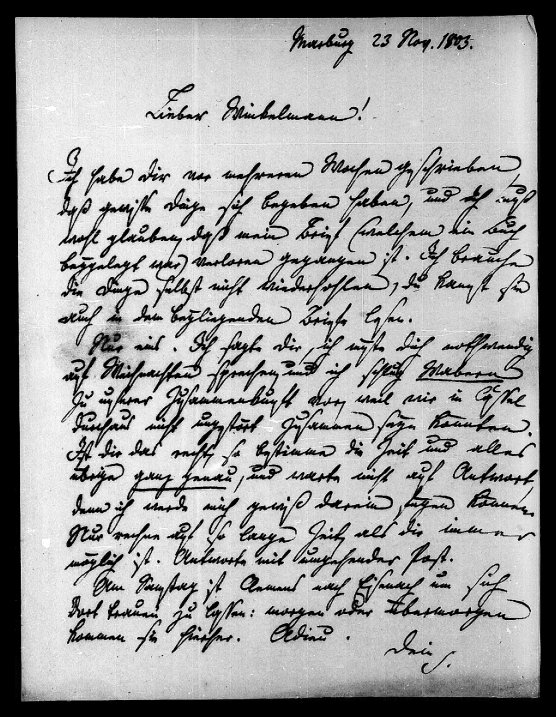 Marburg 23 Nov. 1803.
Lieber Winkelmann!
Ich habe dir vor mehreren Wochen geschrieben,
daß gewisse Dinge sich begeben haben, und ich muß
wohl glauben, daß mein Brief (welchem ein Buch
beygelegt war) verloren gegangen ist. Ich brauche
die Dinge selbst nicht wiederhohlen, du kanst sie
auch in dem beyliegenden Briefe lesen.
Nur eins. Ich sagte dir, ich müste dich nothwendig
auf Weihnachten sprechen, und ich schlug Wabern
zu unserer Zusammenkunft vor, weil wir in Cassel
durchaus nicht ungestört zusammen seyn könnten.
Ist dir das recht, so bestimme die Zeit und alles
übrige ganz genau, und warte nicht auf Antwort,
denn ich werde mich gewiß darein fügen können.
Nur rechne auf so lange Zeit, als dir immer
möglich ist. Antworte mit umgehender Post.
Am Samstag ist Clemens nach Eisenach um sich
dort trauen zu lassen: morgen oder übermorgen
kommen sie hierher. Adieu.
Dein S.